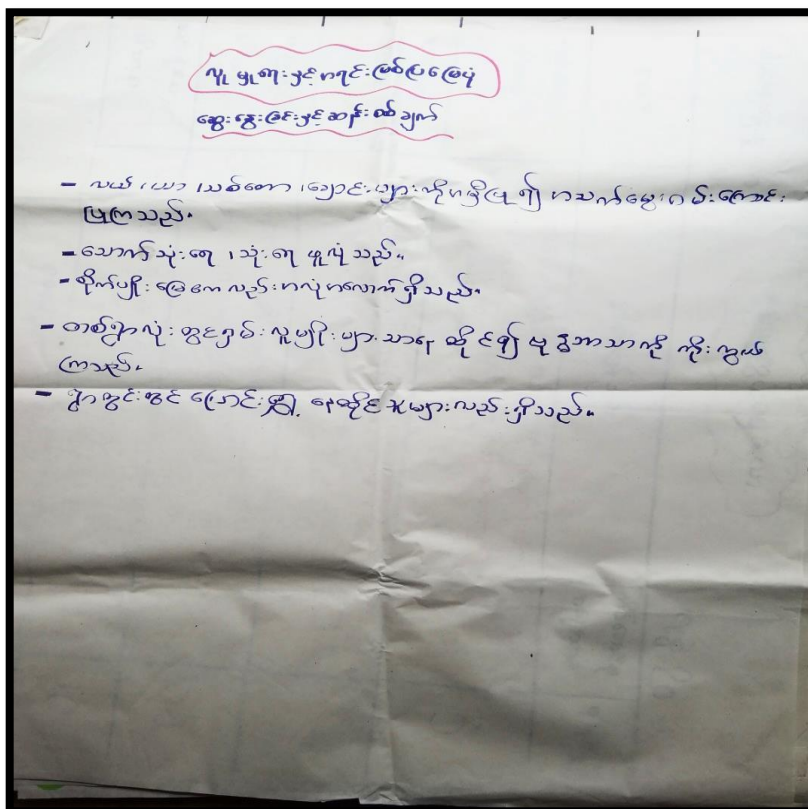 လူမှုရေးနှင့်အရင်းမြစ်ပြမြေပုံ
ဆွေးနွေးခြင်းနှင့်ဆန်းစစ်ချက်
- လယ် ၊ ယာ ၊ သစ်တော ၊ ချောင်းများကိုအမှီပြု၍ အသက်မွေးဝမ်းကြောင်း
ပြုကြသည်။
- သောက်သုံးရေ ၊ သုံးရေ ဖူလုံသည်။
- စိုက်ပျိုးမြေကလည်းအလုံအလောက်ရှိသည်။
- တစ်ရွာလုံးတွင်ရှမ်းလူမျိုးများသာနေထိုင်၍ ဗုဒ္ဓဘာသာကို ကိုးကွယ်
ကြသည်။
- ရွာတွင်းတွင် ပြောင်းရွှေ့နေထိုင်သူများလည်းရှိသည်။